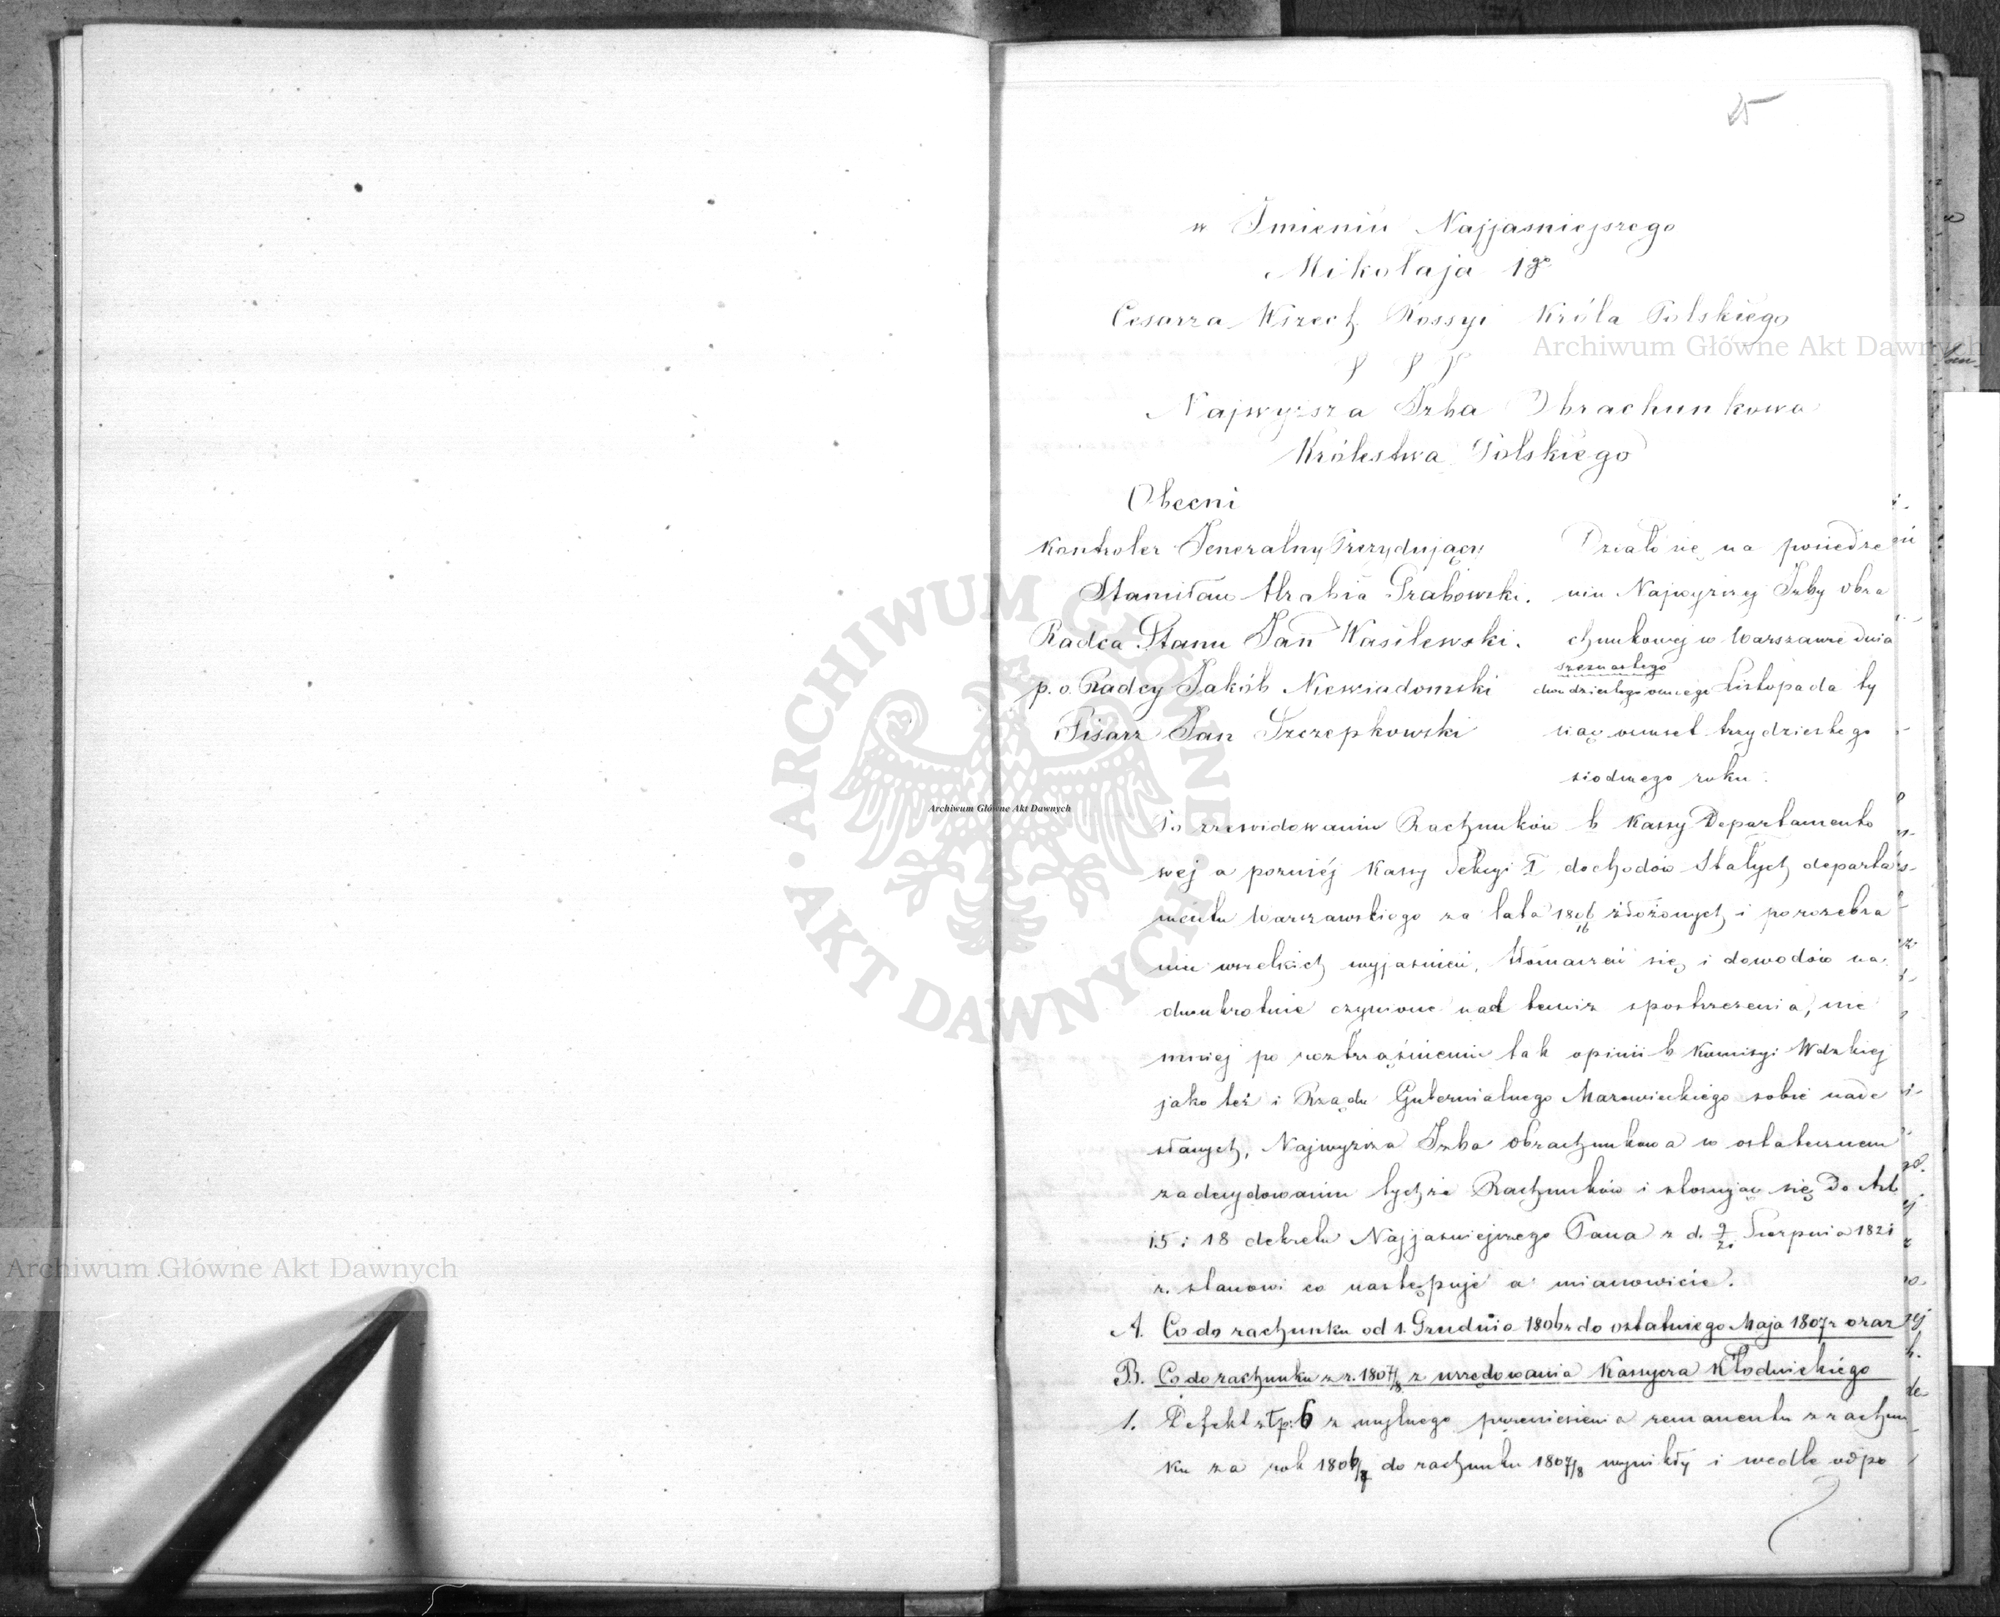 25
w Imieniu Najjasniejszego
Mikołaja 1go
Cesarza Wszech Rossyi Króla Polskiego
Najwyższa Izba Obrachunkowa
Królestwa Polskiego
Obecni
Kontroler Jeneralny Prezydujący
Stanisław Hrabia Grabowski.
Radca Stanu Jan Wasilewski.
p. o. Radcy Jakób Niewiadomski
Pisarz Jan Szczepkowski
Działo się na posiedze
niu Najwyższej Izby Obra
chunkowej w Warszawie dnia
szesnastego
dwudziestego ósmego Listopada ty
siąc ośmset trzydziestego
siodmego roku.
Po zrewidowaniu Rachunków b Kassy Departamento
wej a poźniéj Kassy Sekcyi I dochodów Stałych departa
mentu Warszawskiego za lata 1806/16 złożonych i po rozebra
niu wszelkich wyjaśnień, tłomaczeń się i dowodów na
dwukrotnie czynione nad temiż spostrzeżenia, nie
mniej po roztrząśnieniu tak opinii b Komisyi Wdzkiej
jako też i Rządu Gubernialnego Mazowieckiego sobie nade
słanych, Najwyższa Izba Obrachunkowa w ostatecznem
zadecydowaniu tychże Rachunków i stosując się Do Art
15 i 18 dekretu Najjaśniejszego Pana z d. 9/21 Sierpnia 1821
r. stanowi co następuje a mianowicie.
A. Co do rachunku od 1. Grudnia 1806 r do ostatniego Maja 1807 r oraz
B. Co do rachunku z r. 1807/8 z urzędowania Kassyera Kłodnickiego
1. Defekt stp: 6 z mylnego przeniesienia remanentu z rachun
ku za rok 1806/7 do rachunku 1807/8 wynikły i wedle odpo
Archiwum Główne Akt Dawnych
Archiwum Główne Akt Dawnych
Archiwum Główne Akt Dawnych
ARCHIWUM GŁÓWNE AKT DAWNYCH